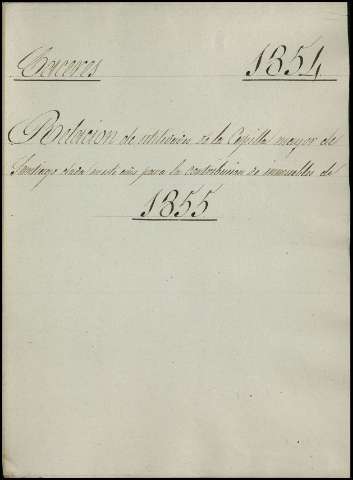 Caceres 1854
Relacion de utilidades de la Capilla mayor de
Santiago dada en este año para la contribucion de inmuebles de
1855